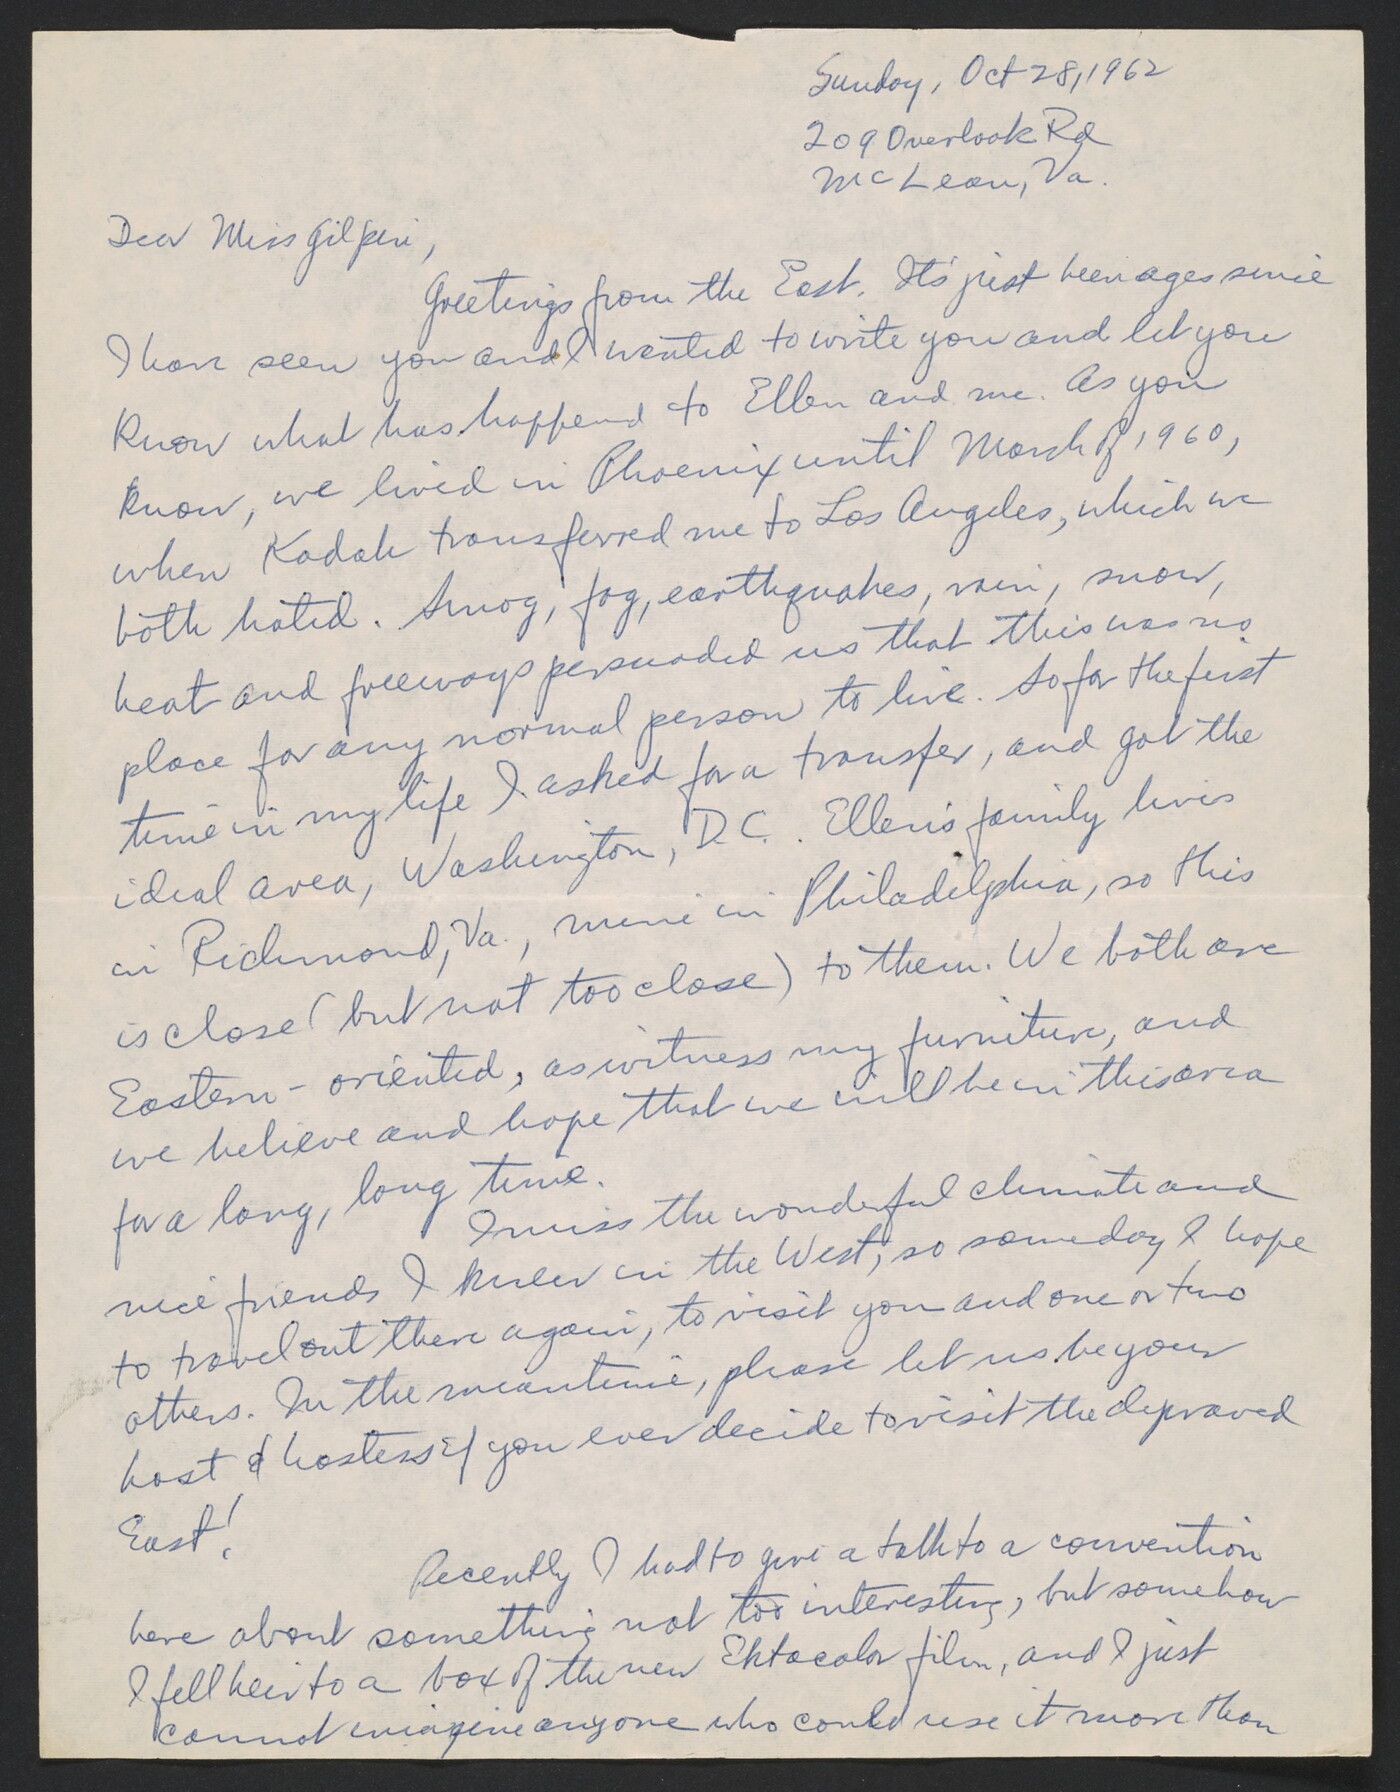 Sunday, Oct 28, 1962
209 Overlook Rd
McLean, Va.
Dear Miss Gilpin,
Greetings from the East. It's just been ages since
I have seen you and I wanted to write you and let you
know what has happend to Ellen and me. As you
know, we lived in Phoenix until March of 1960,
when Kodak transferred me to Los Angeles, which we
both hated. Smog, fog, earthquakes, rain, snow,
heat and freeways persuaded us that this was no
place for any normal person to live. So for the first
time in my life I asked for a transfer, and got the
ideal area, Washington, D.C.. Ellen's family lives
in Richmond, Va., mine in Philadelphia, so this
is close (but not too close) to them. We both are
Eastern-oriented, as witness my furniture, and
we believe and hope that we will be in this area
for a long, long time.
I miss the wonderful climate and
nice friends I knew in the West, so someday I hope
to travel out there again, to visit you and one or two
others. In the meantime, please let us be your
host & hostess if you ever decide to visit the depraved
East!
Recently I had to give a talk to a convention
here about something not too interesting, but somehow
I fell heir to a box of the new Ektacolor film, and I just
cannot imagine anyone who could use it more than